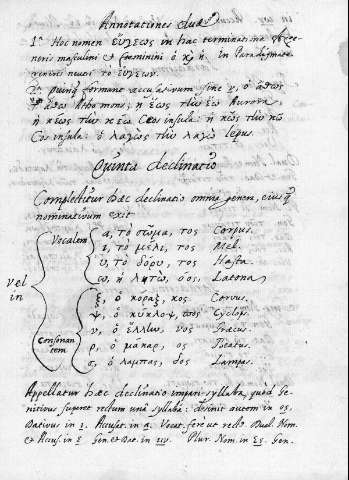 Annotationes duæ.
1ª Hoc nomen εὔγεως in hac terminatione est ge-
neris masculini et fæminini ὁ καὶ ἡ. in Paradigmate
neutri το εὔγεων.
2ª quinque formant accusativum sine ν, ὁ ἄθως
ἄθω Atho mons, ἡ ἕως τὴν ἕω Aurora,
ἡ κέως τὴν κέω Cea insula: ἡ κῶς τὴν κῶ
Cos insula: ὁ λαγὼς τὸν λαγὼ lepus.
Quinta declinatio
Complectitur hæc declinatio omnia genera, eius
nominativum exit
vel in
Vocalem
α, το σῶμα, τος Corpus.
ι, το μέλι, τος Mel.
υ, το δόρυ, τος Hasta.
ω, ἡ λητὼ, όος, Latona,
Consonantem
ξ, ὁ κοραξ, κος Corvus.
ψ, ὁ κύκλοψ, πος Cyclops.
ν, ὁ ἕλλην, νος Græcus.
ρ, ὁ μάκαρ, ος Beatus.
ς, ὁ λαμπας, δος Lampas.
Appellatur hæc declinatio impari-syllaba, quod Ge-
nitivus superet rectum unâ syllaba: desinit autem in ος.
Dativus in ι. Accusat. in α. Vocat. fere ut recto. Dual. Nom.
et Accus. in ε gen. et Dat. in οιν. Plur. Nom. in ες. Gen.